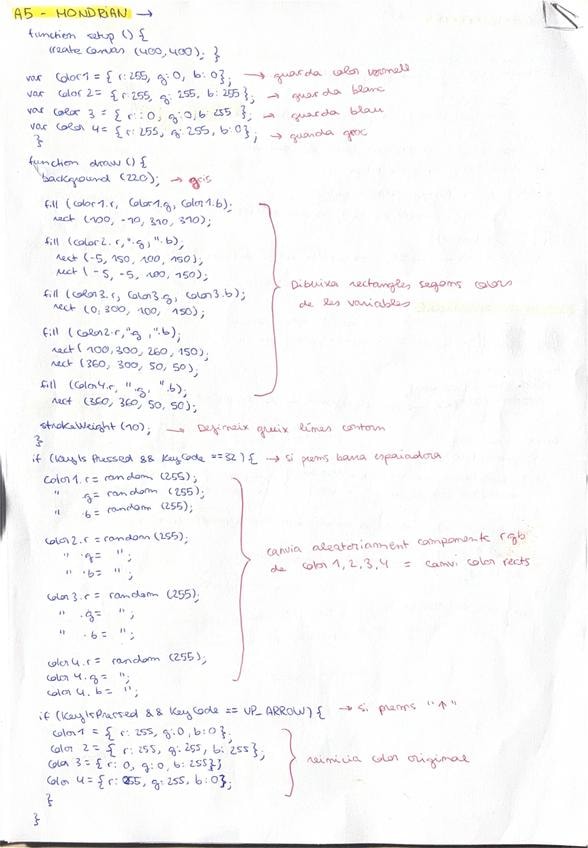 A5 - MONDRIAN →
function setup () {
createCanvas (400,400); }
var color1 = { r:255, g:0, b:0}; → guarda color vermell
var color 2= { r:255, g: 255, b:255 }; → guarda blanc
var color 3 = { r: :0, g:0, b: 255 }; → guarda blau
var color 4= { r: 255, g: 255, b:0 }; → guarda groc
}
function draw () {
background (220); → gris
fill (color1.r, color1.g, color1.b);
rect (100, -10, 310, 310);
fill (color2.r, ".g, ".b);
rect (-5, 150, 100, 150);
rect (-5, -5, 100, 150);
fill (color3.r, color3.g, color3.b);
rect (0,300, 100, 150);
Dibuixa rectangles segons colors
de les variables
fill (color2.r, "g, ".b);
rect (100,300, 260, 150);
rect (360, 300, 50, 50);
fill (color4.r, ".g, ".b);
rect (360, 360, 50, 50);
strokeWeight (10); → Defineix gruix línies contorn
}
if (keyIsPressed && keyCode ==32) { → si prems barra espaiadora
color1.r = random (255);
" .g = random (255);
" .b = random (255);
color2.r = random (255);
" .g = ";
" .b = ";
canvia aleatoriament components rgb
de color 1,2,3,4 = canvi color rects
color3.r = random (255);
" .g = ";
" .b = ";
color 4.r = random (255);
color 4.g = ";
color 4.b = ";
if (keyIsPressed && keyCode == UP_ARROW) { → si prems "↑"
color1 = { r: 255, g:0, b:0 };
color 2 = { r: 255, g: 255, b: 255 };
color 3 = { r: 0, g: 0, b: 255 };
color 4 = { r: 255, g: 255, b:0 };
reinicia color original
}
}